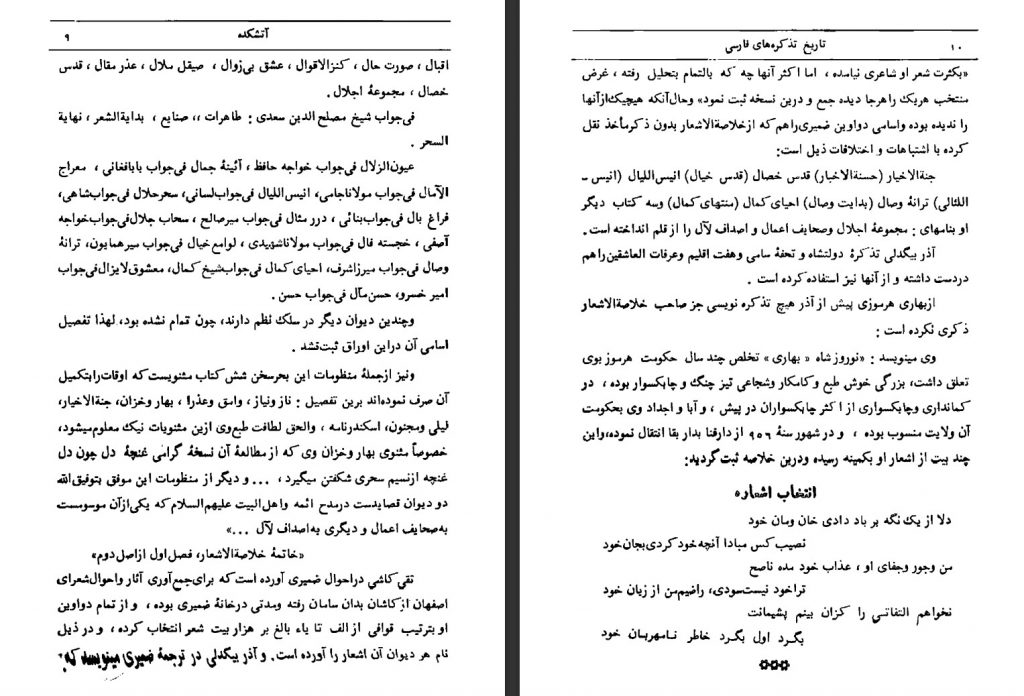 آتشکده
۹
اقبال ، صورت حال ، کنزالاقوال ، عشق بی‌زوال ، صیقل ملال ، عذر مقال ، قدس
خصال ، مجموعهٔ اجلال .
فی‌جواب شیخ مصلح‌الدین سعدی : طاهرات ،، صنایع ، بدایة‌الشعر ، نهایة
السحر .
عیون‌الزلال فی‌جواب خواجه حافظ ، آئینهٔ جمال فی‌جواب بابافغانی ، معراج
الآمال فی‌جواب مولاناجامی، انیس‌اللیال فی‌جواب‌لسانی، سحرحلال فی‌جواب‌شاهی،
فراغ بال فی‌جواب‌بنائی ، درر مثال فی‌جواب میرصالح ، سحاب جلال‌فی‌جواب‌خواجه
آصفی ، خجسته فال فی‌جواب مولاناشهیدی ، لوامع خیال فی‌جواب میرهمایون، ترانهٔ
وصال فی‌جواب میرزاشرف، احیای کمال فی‌جواب‌شیخ کمال، معشوق‌لایزال‌فی‌جواب
امیر خسرو، حسن‌مآل فی‌جواب حسن .
وچندین دیوان دیگر در سلک نظم دارند، چون تمام نشده بود، لهذا تفصیل
اسامی آن دراین اوراق ثبت‌نشد .
ونیز ازجملهٔ منظومات این بحرسخن شش کتاب مثنویست که اوقات رابتکمیل
آن صرف نموده‌اند برین تفصیل : ناز ونیاز ، وامق وعذرا ، بهار وخزان، جنة‌الاخیار،
لیلی ومجنون، اسکندرنامه ، والحق لطافت طبع‌وی ازین مثنویات نیک معلوم‌میشود،
خصوصاً مثنوی بهار وخزان وی که از مطالعهٔ آن نسخهٔ گرامی غنچهٔ دل چون دل
غنچه ازنسیم سحری شکفتن میگیرد ، ... و دیگر از منظومات این موفق بتوفیق‌الله
دو دیوان قصایدست درمدح ائمه واهل‌البیت علیهم‌السلام که یکی‌ازآن موسومست
به‌صحایف اعمال و دیگری به‌اصداف لآل ...»
«خاتمهٔ خلاصة‌الاشعار، فصل‌اول ازاصل‌دوم»
تقی‌کاشی دراحوال ضمیری آورده است‌که برای‌جمع‌آوری آثار واحوال‌شعرای
اصفهان ازکاشان بدان سامان رفته ومدتی درخانهٔ ضمیری بوده ، و از تمام دواوین
او بترتیب قوافی از الف تا یاء بالغ بر هزار بیت شعر انتخاب کرده ، و در ذیل
نام هر دیوان آن اشعار را آورده است. و آذر بیگدلی در ترجمهٔ ضمیری مینویسد که:
تاریخ تذکره‌های فارسی
۱۰
«بکثرت شعر او شاعری نیامده ، اما اکثر آنها چه که بالتمام بتحلیل رفته ، غرض
منتخب هریک راهرجا دیده جمع و درین نسخه ثبت نمود» وحال‌آنکه هیچیک‌ازآنها
را ندیده بوده واسامی دواوین ضمیری‌راهم‌که ازخلاصة‌الاشعار بدون ذکرمأخذ نقل
کرده با اشتباهات و اختلافات ذیل است:
جنة‌الاخیار (حسنة‌الاخبار) قدس خصال (قدس خیال) انیس‌اللیال (انیس ـ
اللئالی) ترانهٔ وصال (بدایت وصال) احیای‌کمال (منتهای‌کمال) وسه کتاب دیگر
او بنامهای : مجموعهٔ اجلال وصحایف اعمال و اصداف لآل را از قلم انداخته است.
آذر بیگدلی تذکرهٔ دولتشاه و تحفهٔ سامی وهفت اقلیم وعرفات العاشقین‌راهم
دردست داشته و از آنها نیز استفاده‌کرده است .
ازبهاری هرموزی پیش از آذر هیچ تذکره نویسی جز صاحب خلاصة‌الاشعار
ذکری نکرده است :
وی مینویسد : «نوروز شاه « بهاری» تخلص چند سال حکومت هرموز بوی
تعلق داشت، بزرگی خوش طبع و کامکار وشجاعی تیز چنگ و چابکسوار بوده ، در
کمانداری وچابکسواری از اکثر چابکسواران در پیش ، و آبا و اجداد وی بحکومت
آن ولایت منسوب بوده ، و در شهور سنهٔ ۹۵۶ از دارفنا بدار بقا انتقال نموده،واین
چند بیت از اشعار او بکمینه رسیده ودرین خلاصه ثبت‌گردید:
انتخاب اشعاره
دلا از یک نگه بر باد دادی خان ومان خود
نصیب کس مبادا آنچه‌خودکردی‌بجان‌خود
من وجور وجفای او ، عذاب خود مده ناصح
تراخود نیست‌سودی، راضیم‌من از زیان خود
نخواهم التفاتی را کزان بینم پشیمانت
بگرد اول بگرد خاطر نامهربان خود